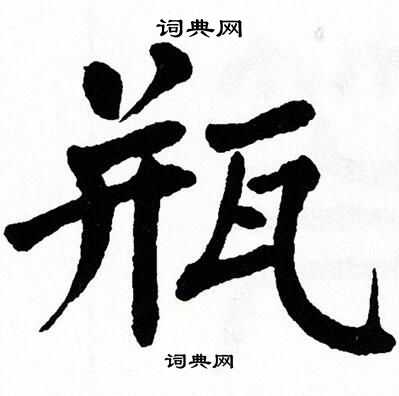 词典网
瓶
词典网